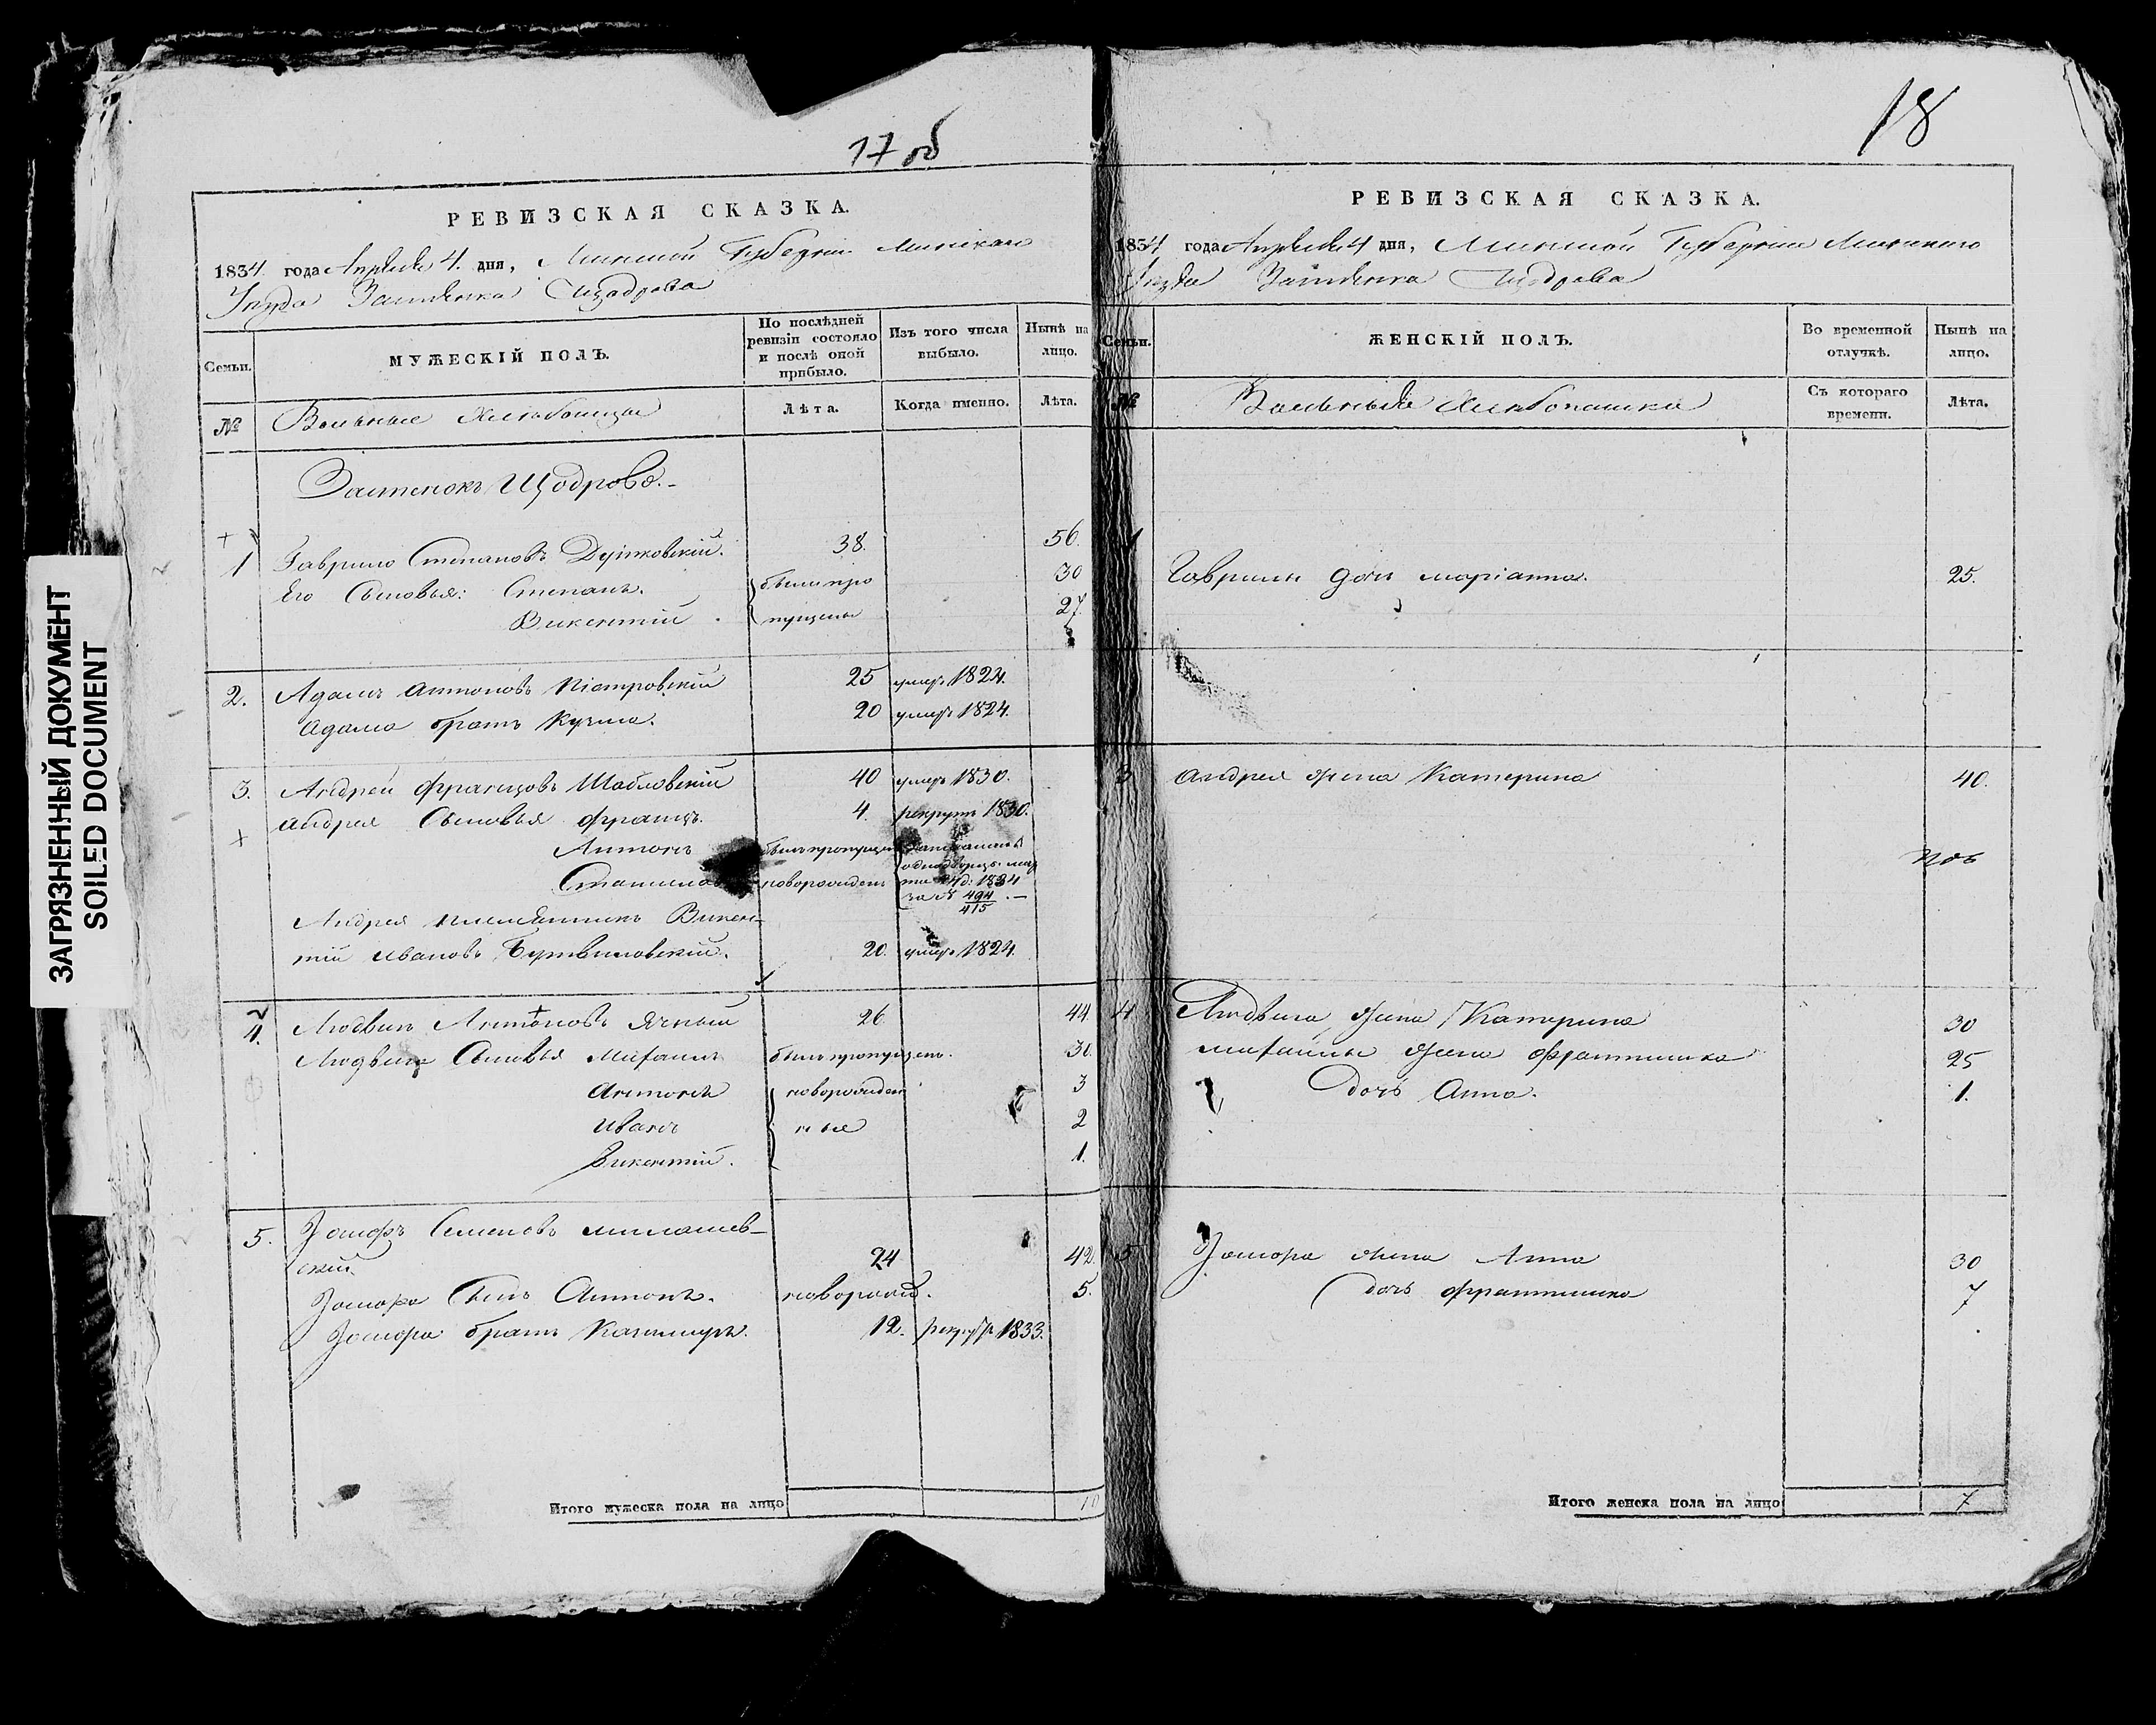 17 об
РЕВИЗСКАЯ СКАЗКА.
1834 года Апреля 4. дня, Минской Губерніи Минскаго
Уезда Застенка Щодрова
Семьи.
МУЖЕСКІЙ ПОЛЪ.
По послѣдней ревизіи состояло и послѣ оной прибыло.
Изъ того числа выбыло.
Нынѣ на лицо.
№
Вольные
Лѣта.
Когда именно.
Лѣта.
Застенокъ Щодрово.
1 Гаврило Степановъ 38. 56.
Его Сыновья: Степанъ. были про 30
Викентій. пущены 27.
2. Адамъ Антоновъ Піетровскій 25 умеръ 1824.
Адама братъ Кузма. 20 умеръ 1824.
3. Андрей Францовъ Шабловскій 40 умеръ 1830.
Андрея Сыновья Францъ. 4. рекрутъ 1830.
Антонъ былъ пропущен
новорожденъ 1834
за № 494
415
Андрея племянникъ Викен-
тій Ивановъ 20. умеръ 1824.
4. Людвигъ Антоновъ Ячный 26 44.
Людвига Сыновья Михаилъ былъ пропущенъ. 30.
Антонъ новорожден 3
Иванъ ные 2
Викентій. 1.
5. Іосифъ Семеновъ Милашев-
скій 24 42.
Іосифа Сынъ Антонъ. новорожд. 5.
Іосифа братъ Казимиръ. 12. рекрутъ 1833.
Итого мужеска пола на лицо 10
18
РЕВИЗСКАЯ СКАЗКА.
1834 года Апреля 4 дня, Минской Губерніи Минскаго
Уезда Застенка Щодрова
Семьи.
ЖЕНСКІЙ ПОЛЪ.
Во временной отлучкѣ.
Нынѣ на лицо.
№
Съ котораго времени.
Лѣта.
1 Гаврилы дочь Маріанна. 25.
3 Андрея жена Катерина 40.
4 Людвига жена Катерина 30
Михайлы жена Францишка 25
дочь Анна. 1.
5 Іосифа жена Анна 30
дочь Францишка 7
Итого женска пола на лицо 7
ЗАГРЯЗНЕННЫЙ ДОКУМЕНТ
SOILED DOCUMENT